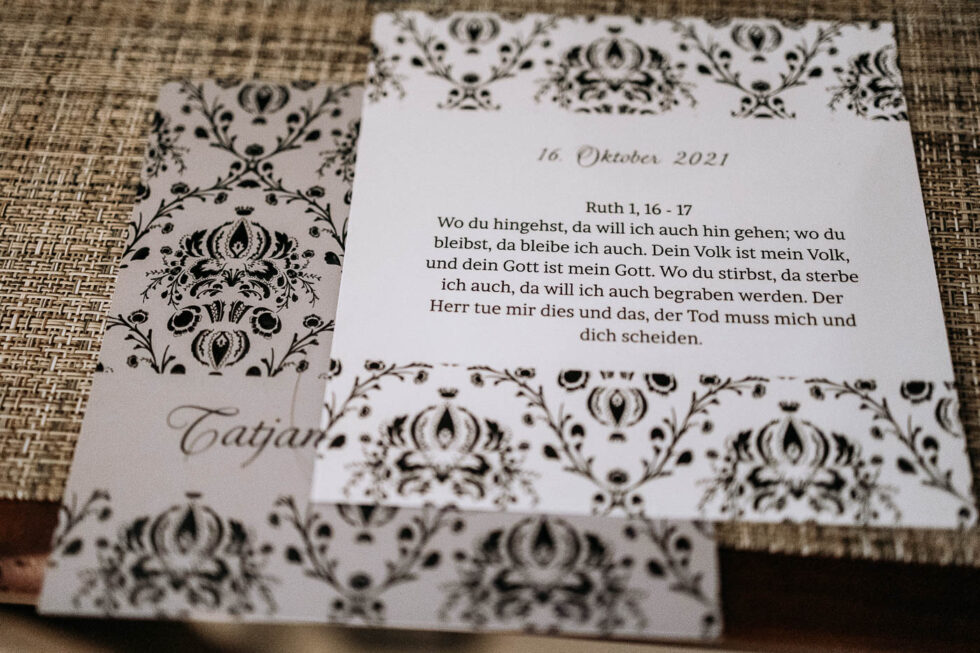 16. Oktober 2021
Ruth 1, 16 - 17
Wo du hingehst, da will ich auch hin gehen; wo du
bleibst, da bleibe ich auch. Dein Volk ist mein Volk,
und dein Gott ist mein Gott. Wo du stirbst, da sterbe
ich auch, da will ich auch begraben werden. Der
Herr tue mir dies und das, der Tod muss mich und
dich scheiden.
Tatjan